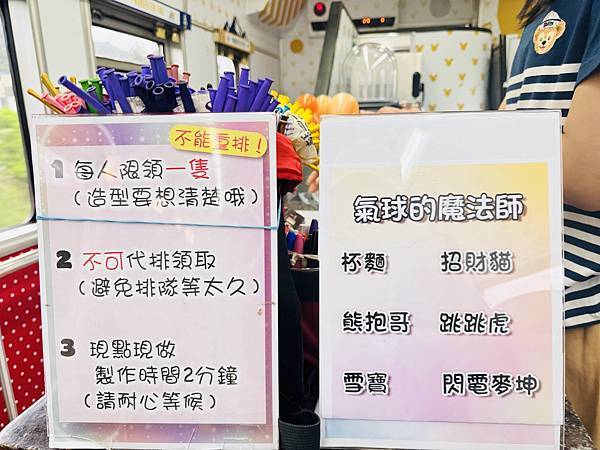 不能重排！
1 每人限領一隻
（造型要想清楚哦）
2 不可代排領取
（避免排隊等太久）
3 現點現做
製作時間2分鐘
（請耐心等候）
氣球的魔法師
杯麵 招財貓
熊抱哥 跳跳虎
雪寶 閃電麥坤